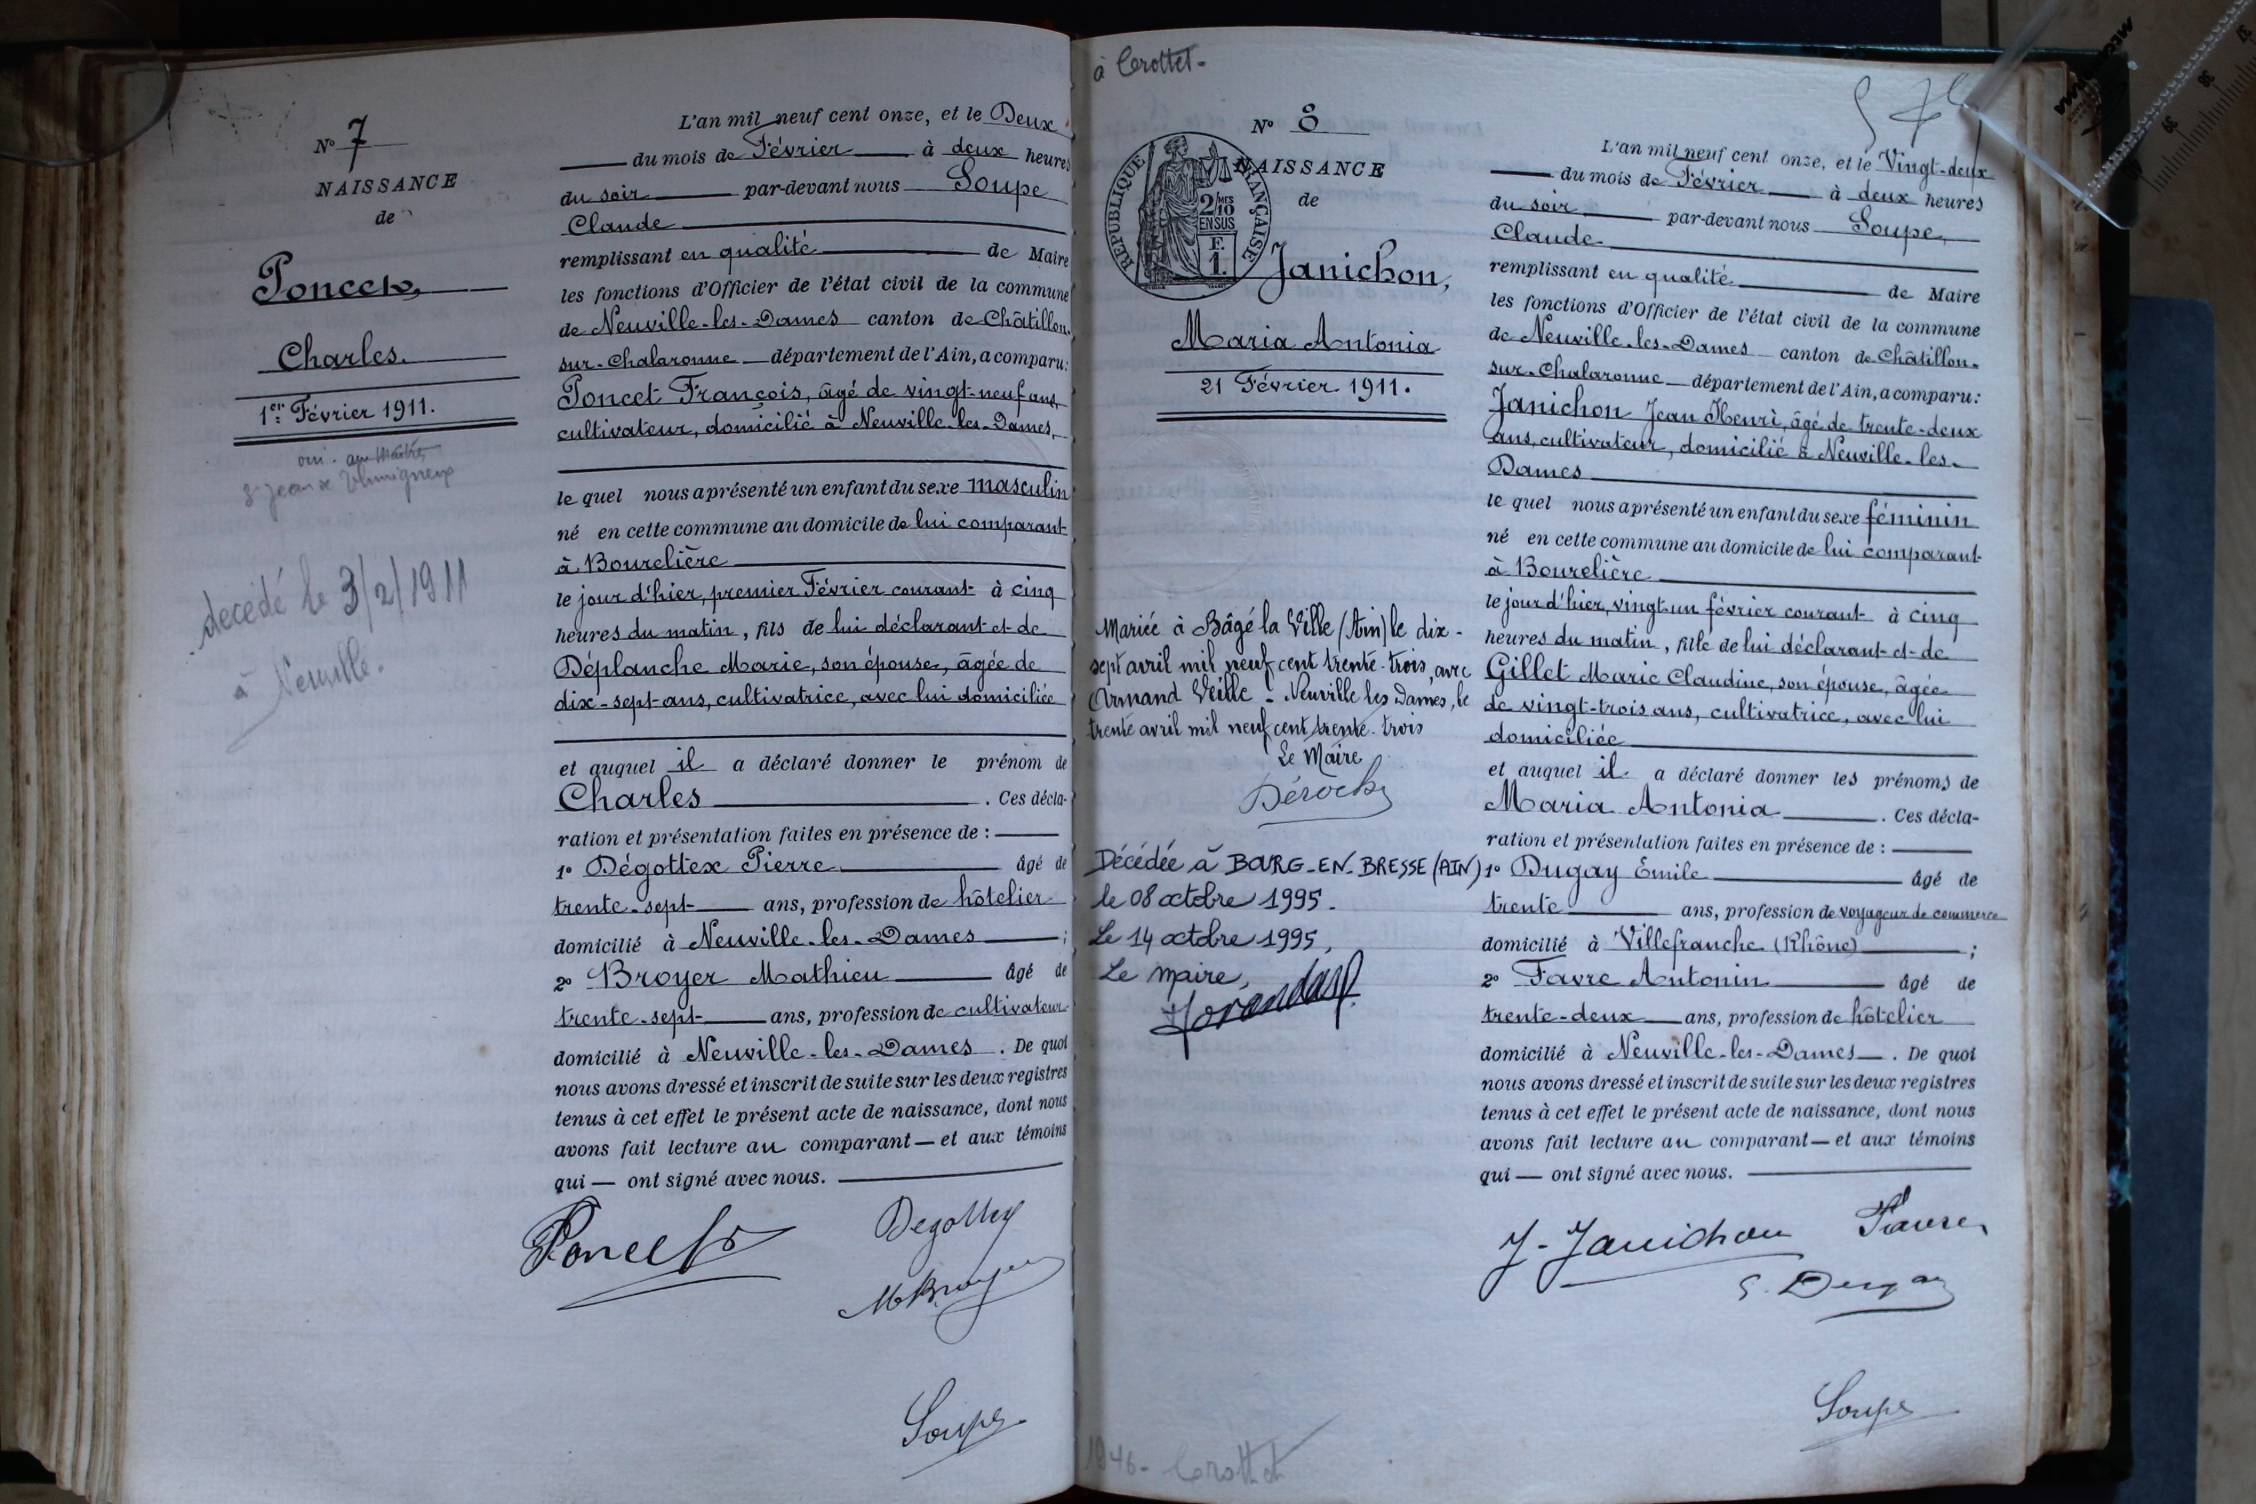 N° 7
NAISSANCE
de
Poncet,
Charles.
1er Février 1911.
oui.
St Jean s/
décédé le 3/2/1911
à Neuville.
L'an mil neuf cent onze, et le Deux
du mois de Février à deux heures
du soir par-devant nous Soupe
Claude
remplissant en qualité de Maire
les fonctions d'Officier de l'état civil de la commune
de Neuville-les-Dames canton de Châtillon-
sur-Chalaronne département de l'Ain, a comparu:
Poncet François, âgé de vingt-neuf ans,
cultivateur, domicilié à Neuville-les-Dames,
le quel nous a présenté un enfant du sexe masculin
né en cette commune au domicile de lui comparant
à Bourelière
le jour d'hier, premier Février courant à cinq
heures du matin, fils de lui déclarant et de
Déplanche Marie, son épouse, âgée de
dix-sept ans, cultivatrice, avec lui domiciliée
et auquel il a déclaré donner le prénom de
Charles . Ces décla-
ration et présentation faites en présence de :
1° Dégottex Pierre âgé de
trente-sept ans, profession de hôtelier
domicilié à Neuville-les-Dames ;
2° Broyer Mathieu âgé de
trente-sept ans, profession de cultivateur
domicilié à Neuville-les-Dames . De quoi
nous avons dressé et inscrit de suite sur les deux registres
tenus à cet effet le présent acte de naissance, dont nous
avons fait lecture au comparant — et aux témoins
qui — ont signé avec nous.
Poncet
Degottex
M Broyer
Soupe
à Crottet-
N° 8
NAISSANCE
de
RÉPUBLIQUE FRANÇAISE
2/10
EN SUS
F.
1.
Janichon,
Maria Antonia
21 Février 1911.
Mariée à Bâgé la Ville (Ain) le dix-
sept avril mil neuf cent trente-trois, avec
Armand Veille - Neuville les Dames, le
trente avril mil neuf cent trente-trois
Le Maire
Décédée à BOURG-EN-BRESSE (AIN)
le 08 octobre 1995.
Le 14 octobre 1995,
Le maire,
1946- Crottet
L'an mil neuf cent onze, et le Vingt-deux
du mois de Février à deux heures
du soir par-devant nous Soupe,
Claude
remplissant en qualité de Maire
les fonctions d'Officier de l'état civil de la commune
de Neuville-les-Dames canton de Châtillon-
sur-Chalaronne département de l'Ain, a comparu:
Janichon Jean Henri, âgé de trente-deux
ans, cultivateur, domicilié à Neuville-les-
Dames
le quel nous a présenté un enfant du sexe féminin
né en cette commune au domicile de lui comparant
à Bourelière
le jour d'hier, vingt-un février courant à cinq
heures du matin, fille de lui déclarant et de
Gillet Marie Claudine, son épouse, âgée
de vingt-trois ans, cultivatrice, avec lui
domiciliée
et auquel il a déclaré donner les prénoms de
Maria Antonia . Ces décla-
ration et présentation faites en présence de :
1° Dugay Emile âgé de
trente ans, profession de voyageur de commerce
domicilié à Villefranche (Rhône) ;
2° Favre Antonin âgé de
trente-deux ans, profession de hôtelier
domicilié à Neuville-les-Dames . De quoi
nous avons dressé et inscrit de suite sur les deux registres
tenus à cet effet le présent acte de naissance, dont nous
avons fait lecture au comparant — et aux témoins
qui — ont signé avec nous.
J. Janichon
Favre
E. Dugay
Soupe